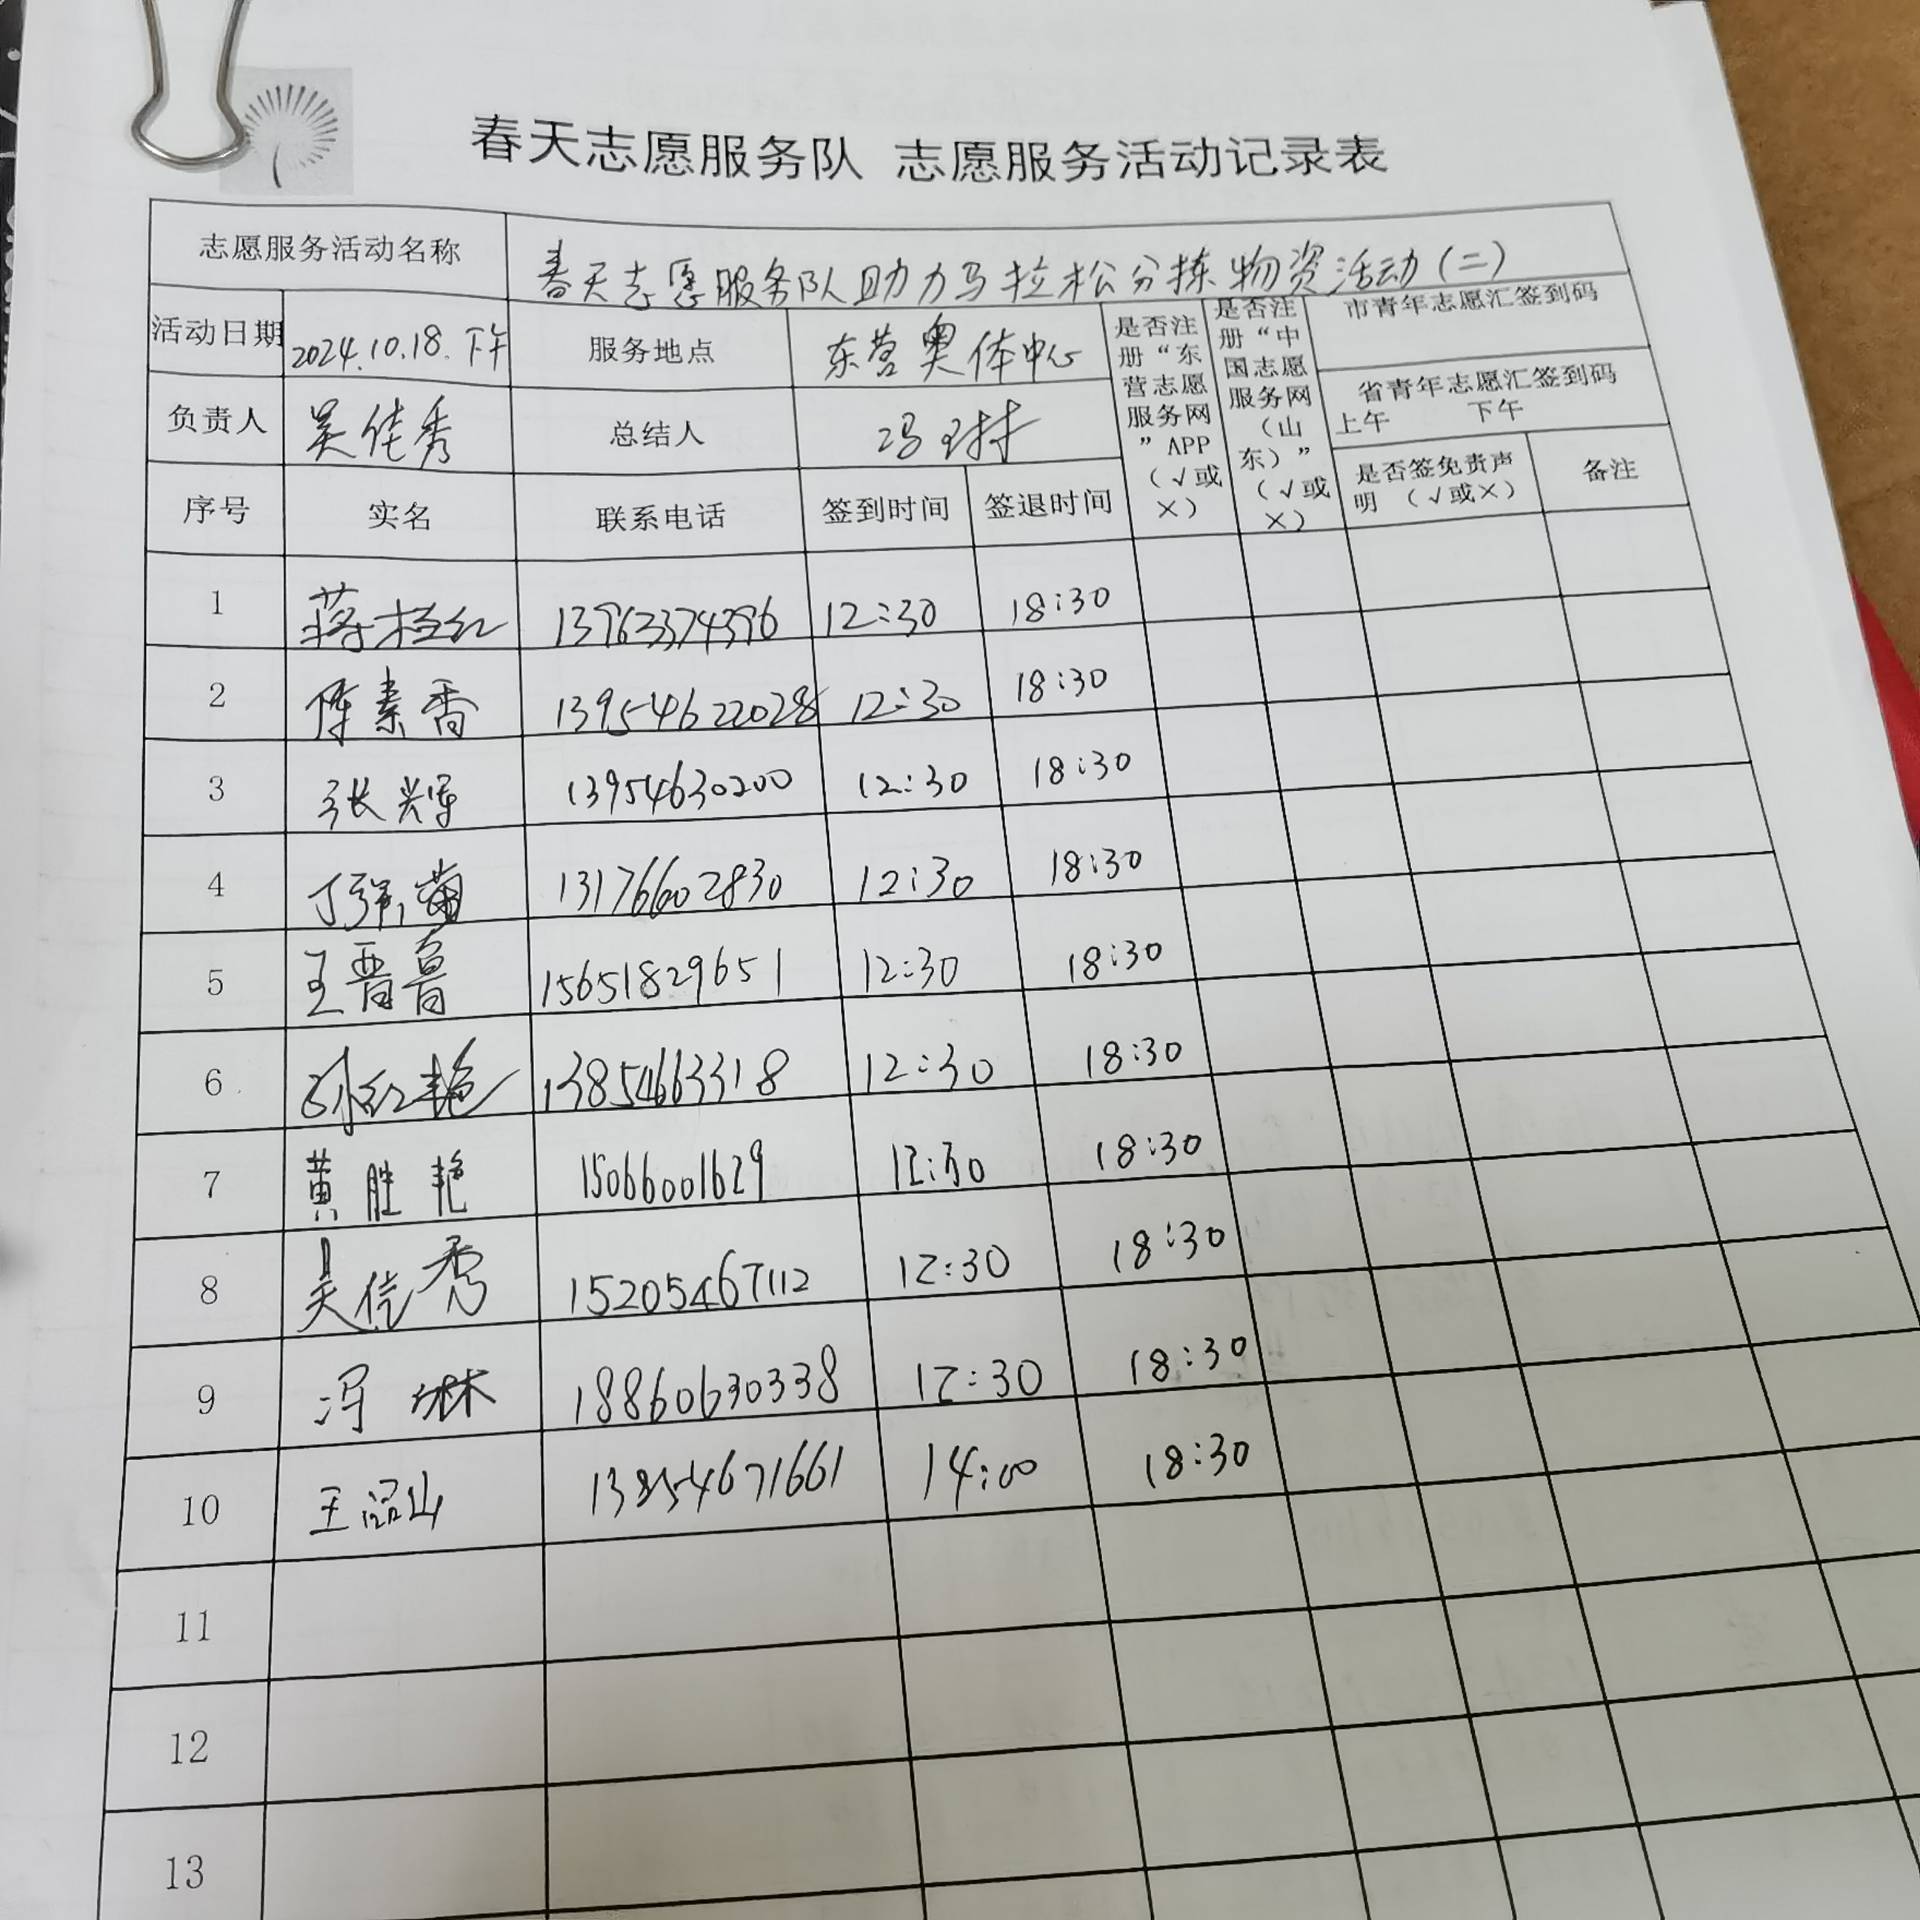 春天志愿服务队 志愿服务活动记录表
志愿服务活动名称 春天志愿服务队助力马拉松分拣物资活动(二)
活动日期 2024.10.18.下午 服务地点 东营奥体中心
负责人 吴佳秀 总结人 冯琳
是否注册“东营志愿服务网”APP（√或×）
是否注册“中国志愿服务网（山东）”（√或×）
市青年志愿汇签到码
省青年志愿汇签到码
上午 下午
序号 实名 联系电话 签到时间 签退时间 是否签免责声明 （√或×） 备注
1 蒋桂红 13963374396 12:30 18:30
2 陈素香 13954622028 12:30 18:30
3 张辉 13954630200 12:30 18:30
4 丁 13176602830 12:30 18:30
5 王晋鲁 15651829651 12:30 18:30
6 红艳 13854663318 12:30 18:30
7 黄胜艳 15066001629 12:30 18:30
8 吴佳秀 15205467112 12:30 18:30
9 冯琳 18860630338 12:30 18:30
10 王山 14:00 18:30
11
12
13